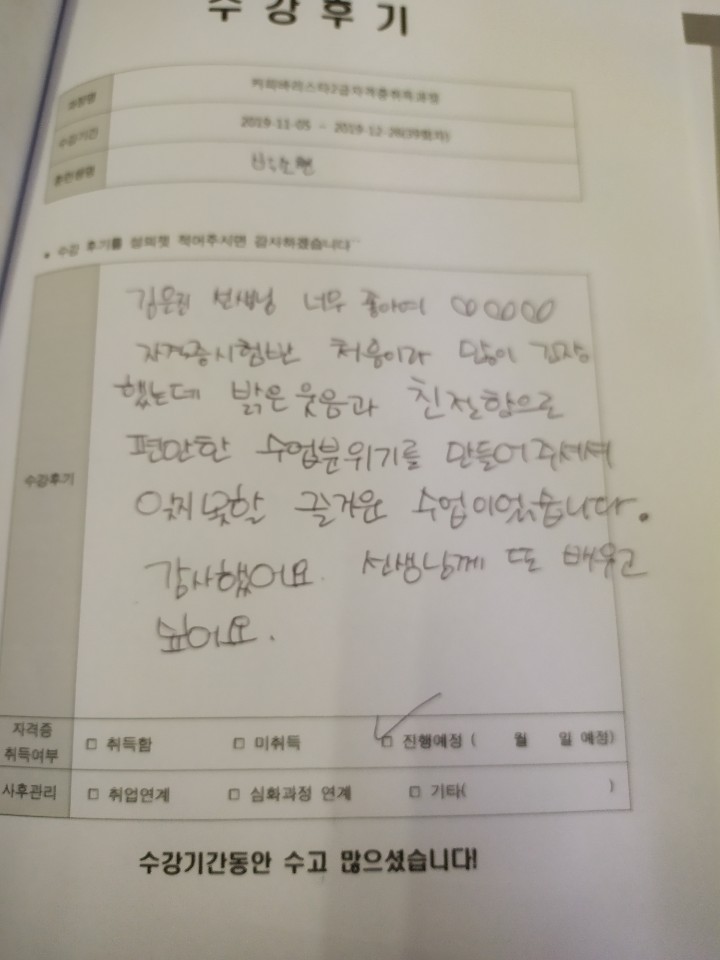 수강후기
과정명 커피바리스타2급자격증취득과정
수강기간 2019-11-05 - 2019-12-26(39회차)
훈련생명
* 수강 후기를 성의껏 적어주시면 감사하겠습니다
수강후기
김은진 선생님 너무 좋아여 ○○○○○
자격증시험반 처음이라 많이 긴장
했는데 밝은 웃음과 친절함으로
편안한 수업분위기를 만들어주셔서
잊지못할 즐거운 수업이었습니다.
감사했어요. 선생님께 또 배우고
싶어요.
자격증 취득여부 □ 취득함 □ 미취득 □ 진행예정 ( 월 일 예정)
사후관리 □ 취업연계 □ 심화과정 연계 □ 기타( )
수강기간동안 수고 많으셨습니다!